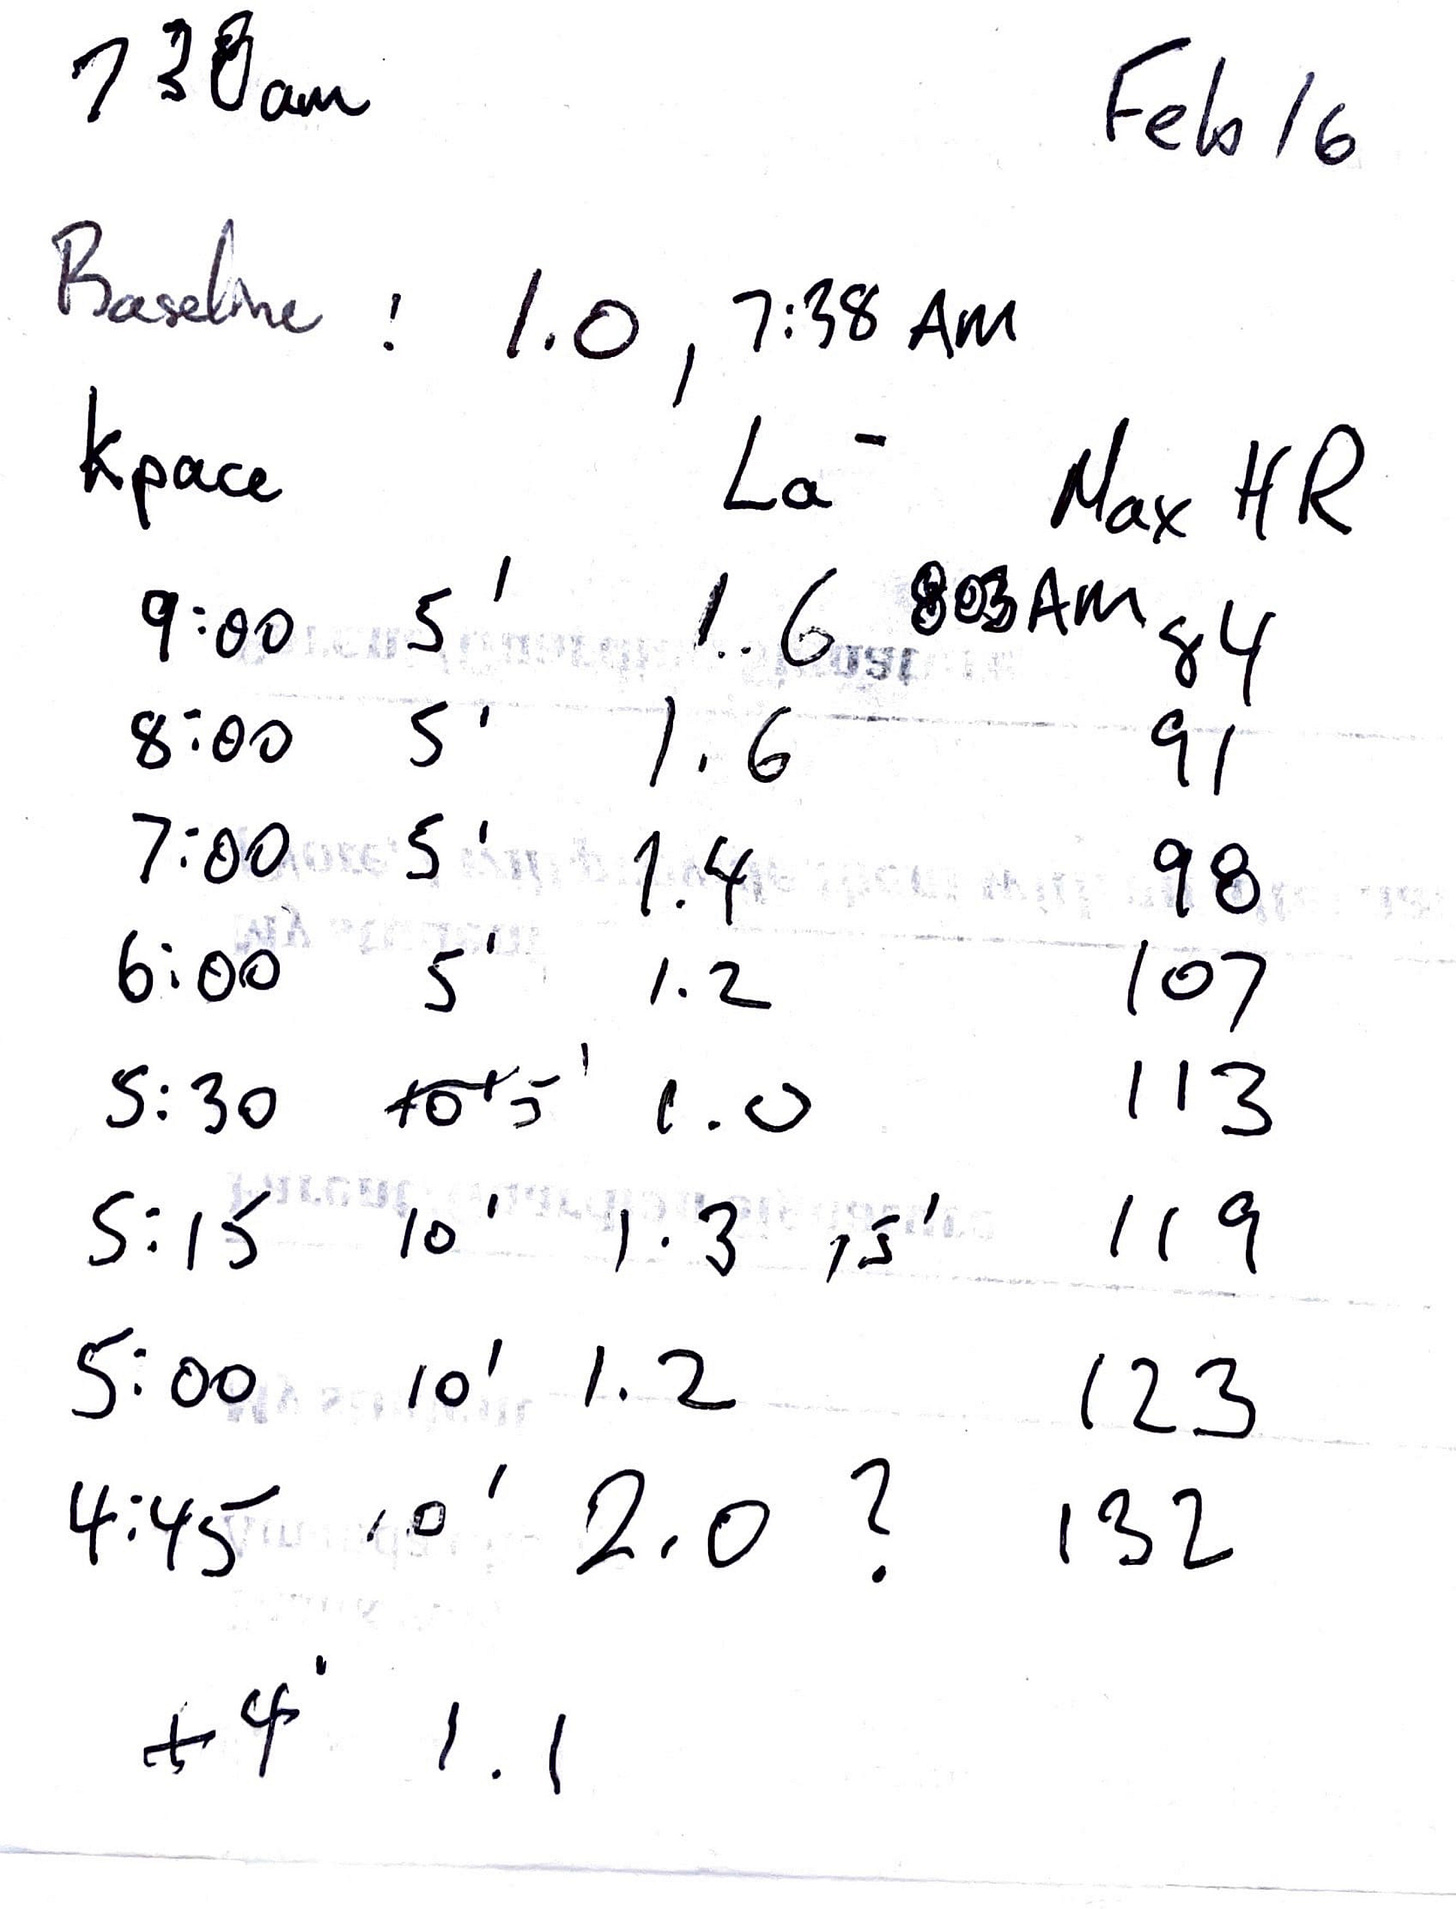 7 30 am Feb 16
Baseline : 1.0, 7:38 AM
kpace La⁻ Max HR
9:00 5' 1.6 803 AM 84
8:00 5' 1.6 91
7:00 5' 1.4 98
6:00 5' 1.2 107
5:30 5' 1.0 113
5:15 10' 1.3 ,5' 119
5:00 10' 1.2 123
4:45 10' 2.0 ? 132
+4' 1.1